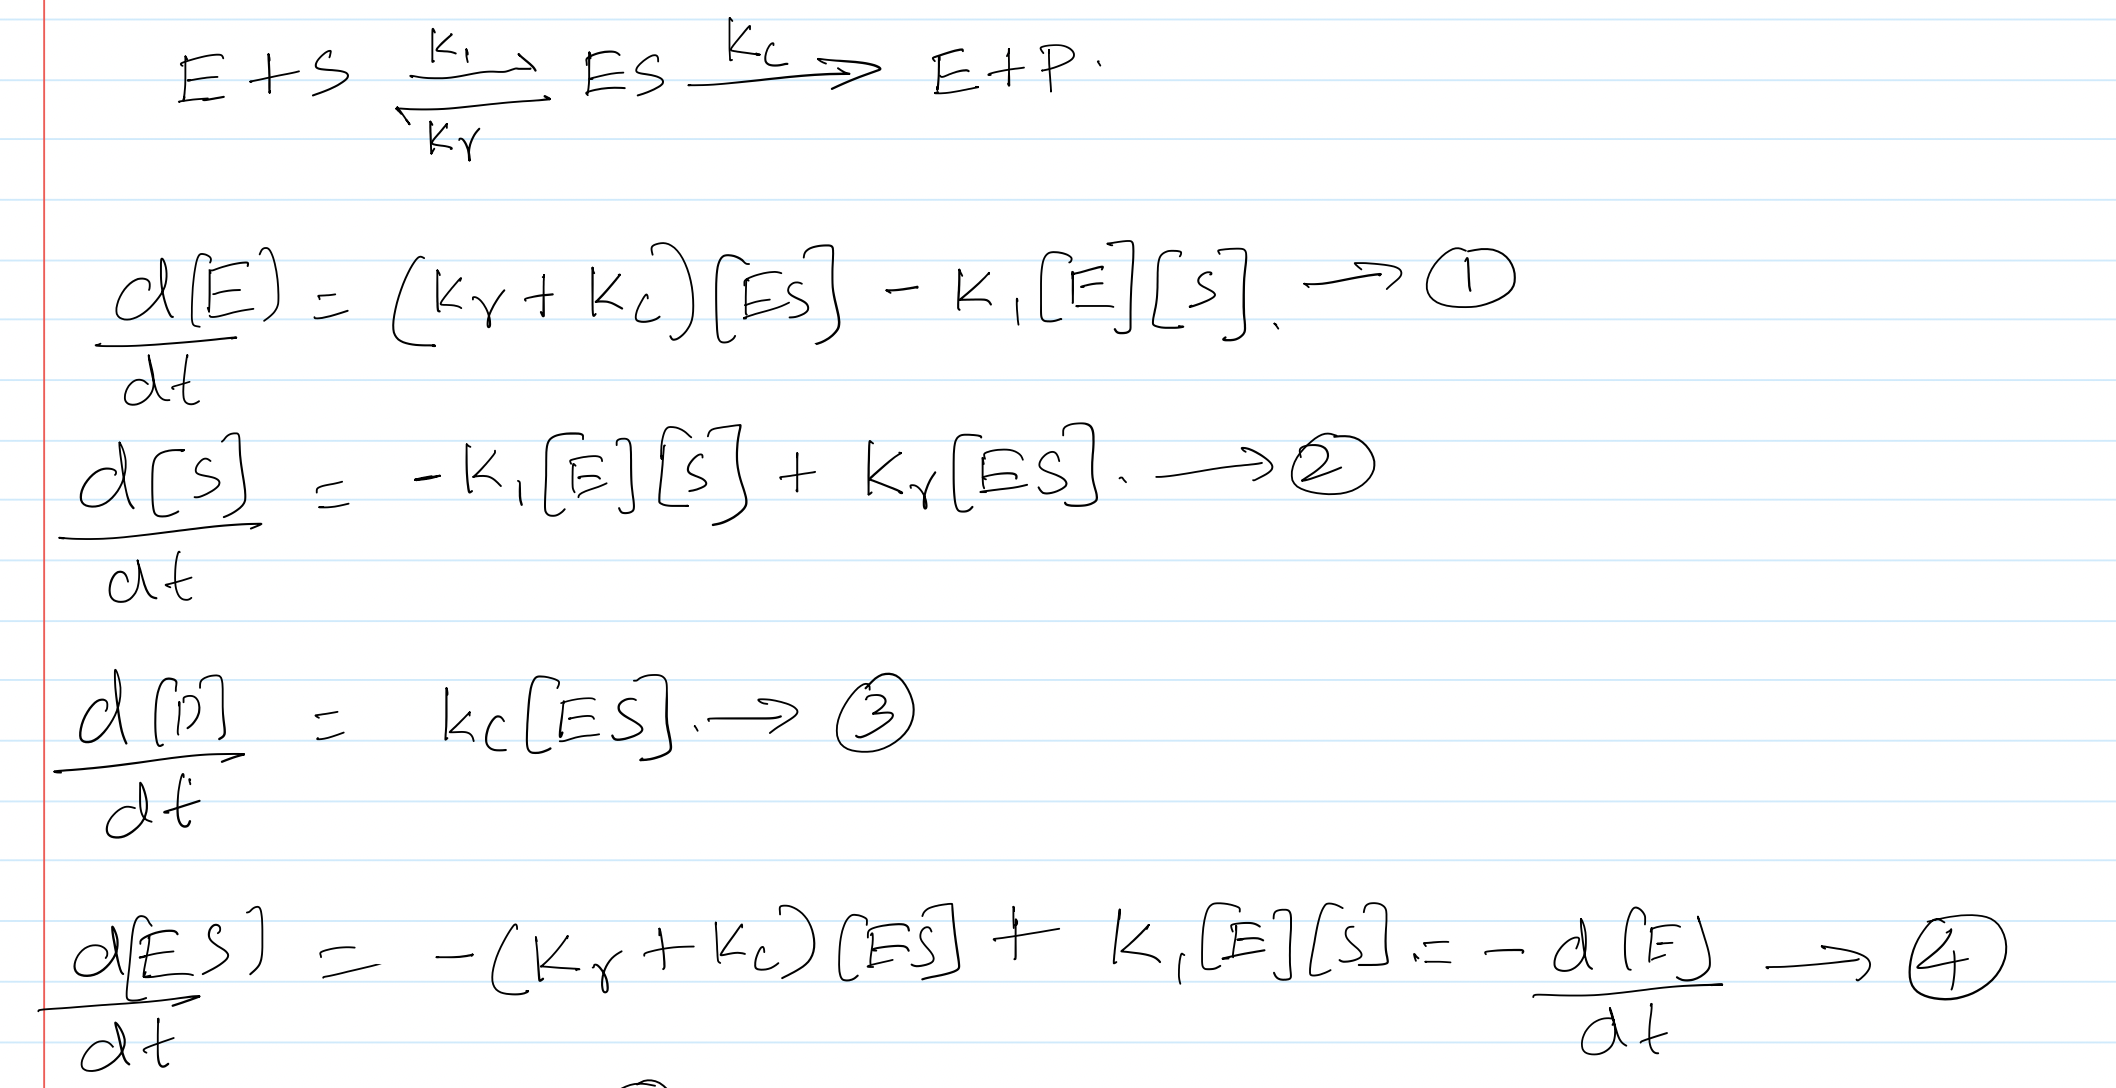 E + S ⇌ ES → E + P.
K₁ Kr Kc
d[E]/dt = (Kr + Kc)[ES] - K₁[E][S]. → ①
d[S]/dt = -K₁[E][S] + Kr[ES]. → ②
d[P]/dt = Kc[ES]. → ③
d[ES]/dt = -(Kr + Kc)[ES] + K₁[E][S]. = -d[E]/dt → ④